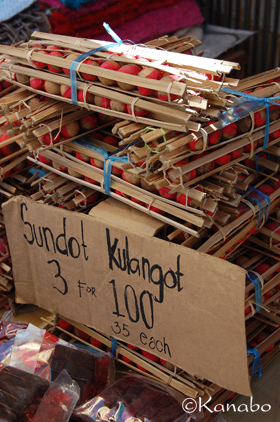 Sundot Kulangot
3 FOR 100
35 each
©Kanabo